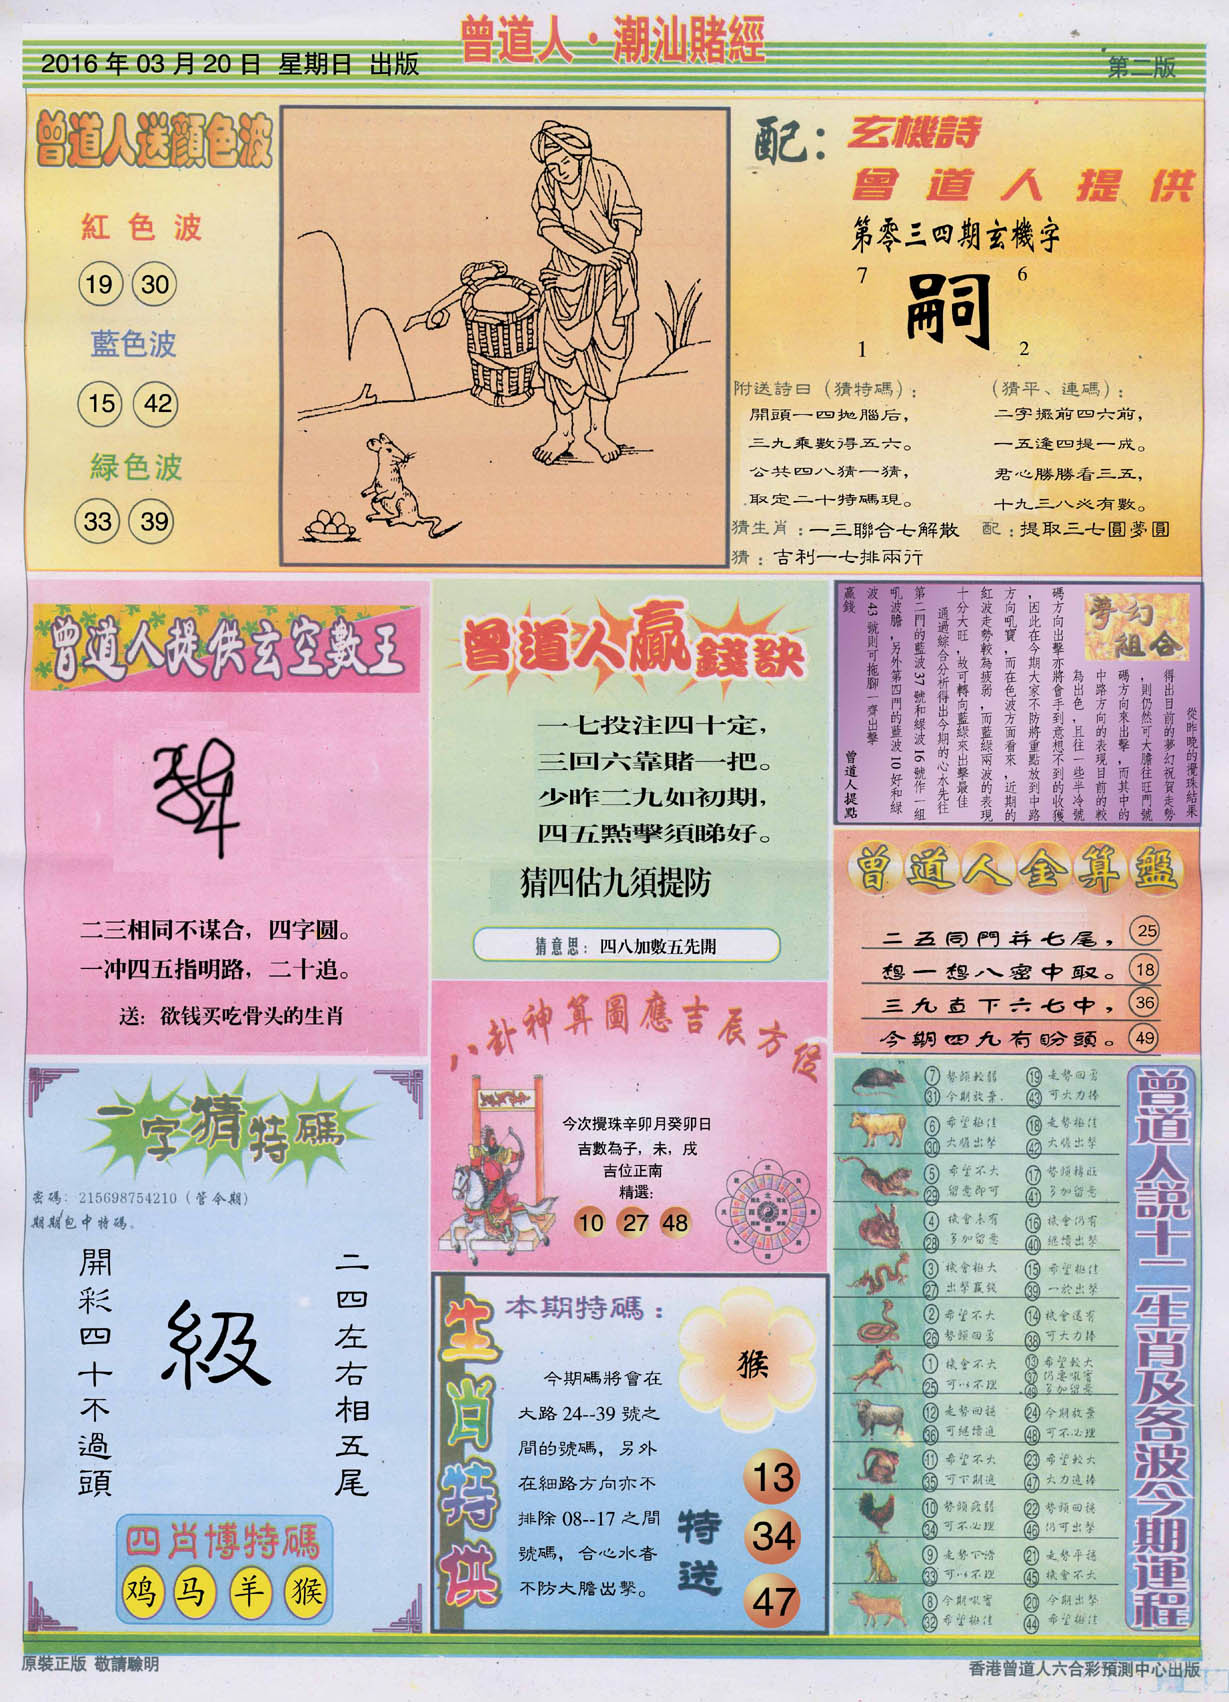 曾道人·潮汕賭經
2016 年 03 月 20 日 星期日 出版
第二版
曾道人送顏色波
紅色波
19 30
藍色波
15 42
綠色波
33 39
配：玄機詩
曾道人提供
第零三四期玄機字
7 6
嗣
1 2
附送詩曰（猜特碼）：
開頭一四拋腦后，
三九乘數得五六。
公共四八猜一猜，
取定二十特碼現。
（猜平、連碼）：
二字擺前四六前，
一五逢四提一成。
君心勝勝看三五，
十九三八必有數。
猜生肖：一三聯合七解散 配：提取三七圓夢圓
猜：吉利一七排兩行
曾道人提供玄空數王
二三相同不谋合，四字圆。
一冲四五指明路，二十追。
送：欲钱买吃骨头的生肖
曾道人贏錢訣
一七投注四十定，
三回六靠賭一把。
少昨二九如初期，
四五點擊須睇好。
猜四估九須提防
猜意思：四八加數五先開
夢幻組合
從昨晚的攪珠結果
得出目前的夢幻祝賀走勢
，則仍然可大膽往旺門號
碼方向來出擊，而其中的
中路方向的表現目前的較
為出色，且往一些半冷號
碼方向出擊亦將會手到意想不到的收獲
，因此在今期大家不防將重點放到中路
方向吼寶，而在色波方面看來，近期的
紅波走勢較為疲弱，而藍綠兩波的表現
十分大旺，故可轉向藍綠來出擊最佳
通過綜合分析得出今期的心水先往
第二門的藍波 37 號和綠波 16 號作一組
吼波膽，另外第四門的藍波 10 好和綠
波 43 號則可拖腳一齊出擊
贏錢
曾道人提點
曾道人金算盤
二五同門并七尾， 25
想一想八密中取。 18
三九直下六七中， 36
今期四九有盼頭。 49
八卦神算圖應吉辰方位
今次攪珠辛卯月癸卯日
吉數為子，未，戌
吉位正南
精選：
10 27 48
一字猜特碼
密碼：215698754210（管今期）
期期包中特碼。
二四左右相五尾
級
開彩四十不過頭
四肖博特碼
鸡 马 羊 猴
生肖特供
本期特碼：
猴
今期碼將會在
大路 24--39 號之
間的號碼，另外
在細路方向亦不
排除 08--17 之間
號碼，合心水者
不防大膽出擊。
特送
13
34
47
曾道人說十二生肖及各波今期運程
7 勢頭較弱 19 走勢回勇
31 今期放棄. 43 可大力捧
6 希望極佳 18 走勢極佳
30 大膽出擊 42 大膽出擊
5 希望不大 17 勢頭轉旺
29 留意即可 41 多加留意
4 機會未有 16 機會仍有
28 多加留意 40 繼續出擊
3 機會極大 15 希望極佳
27 出擊贏錢 39 一於出擊
2 希望不大 14 機會還有
26 勢頭回勇 38 可大力捧
1 機會不大 13 希望較大
25 可以不理 37 仍要吼實
49 多加留意
12 走勢回穩 24 今期放棄
36 可繼續追 48 可不必理
11 希望不大 23 希望較大
35 可下期追 47 大力追捧
10 勢頭疲弱 22 勢頭回穩
34 可不必理 46 仍可出擊
9 走勢下滑 21 走勢平穩
33 可以不理 45 機會不大
8 今期吼實 20 今期出擊
32 希望極佳 44 希望極佳
原裝正版 敬請驗明
香港曾道人六合彩預測中心出版